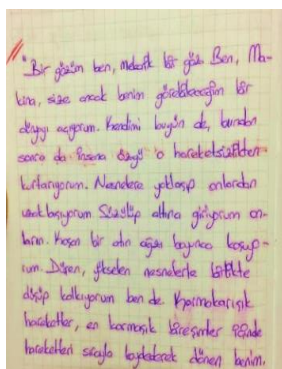 "Bir gözüm ben, mekanik bir göz. Ben, Ma-
kina, size ancak benim görebileceğim bir
dünyayı açıyorum. Kendimi bugün de, bundan
sonra da insana özgü o hareketsizlikten
kurtarıyorum. Nesnelere yaklaşıp onlardan
uzaklaşıyorum. Süzülüp altına giriyorum on-
ların. Koşan bir atın ağzı boyunca koşuyo-
rum. Düşen, yükselen nesnelerle birlikte
düşüp kalkıyorum ben de. Karmakarışık
hareketler, en karmaşık bireşimler içinde
hareketleri sırayla kaydederek dönen benim.